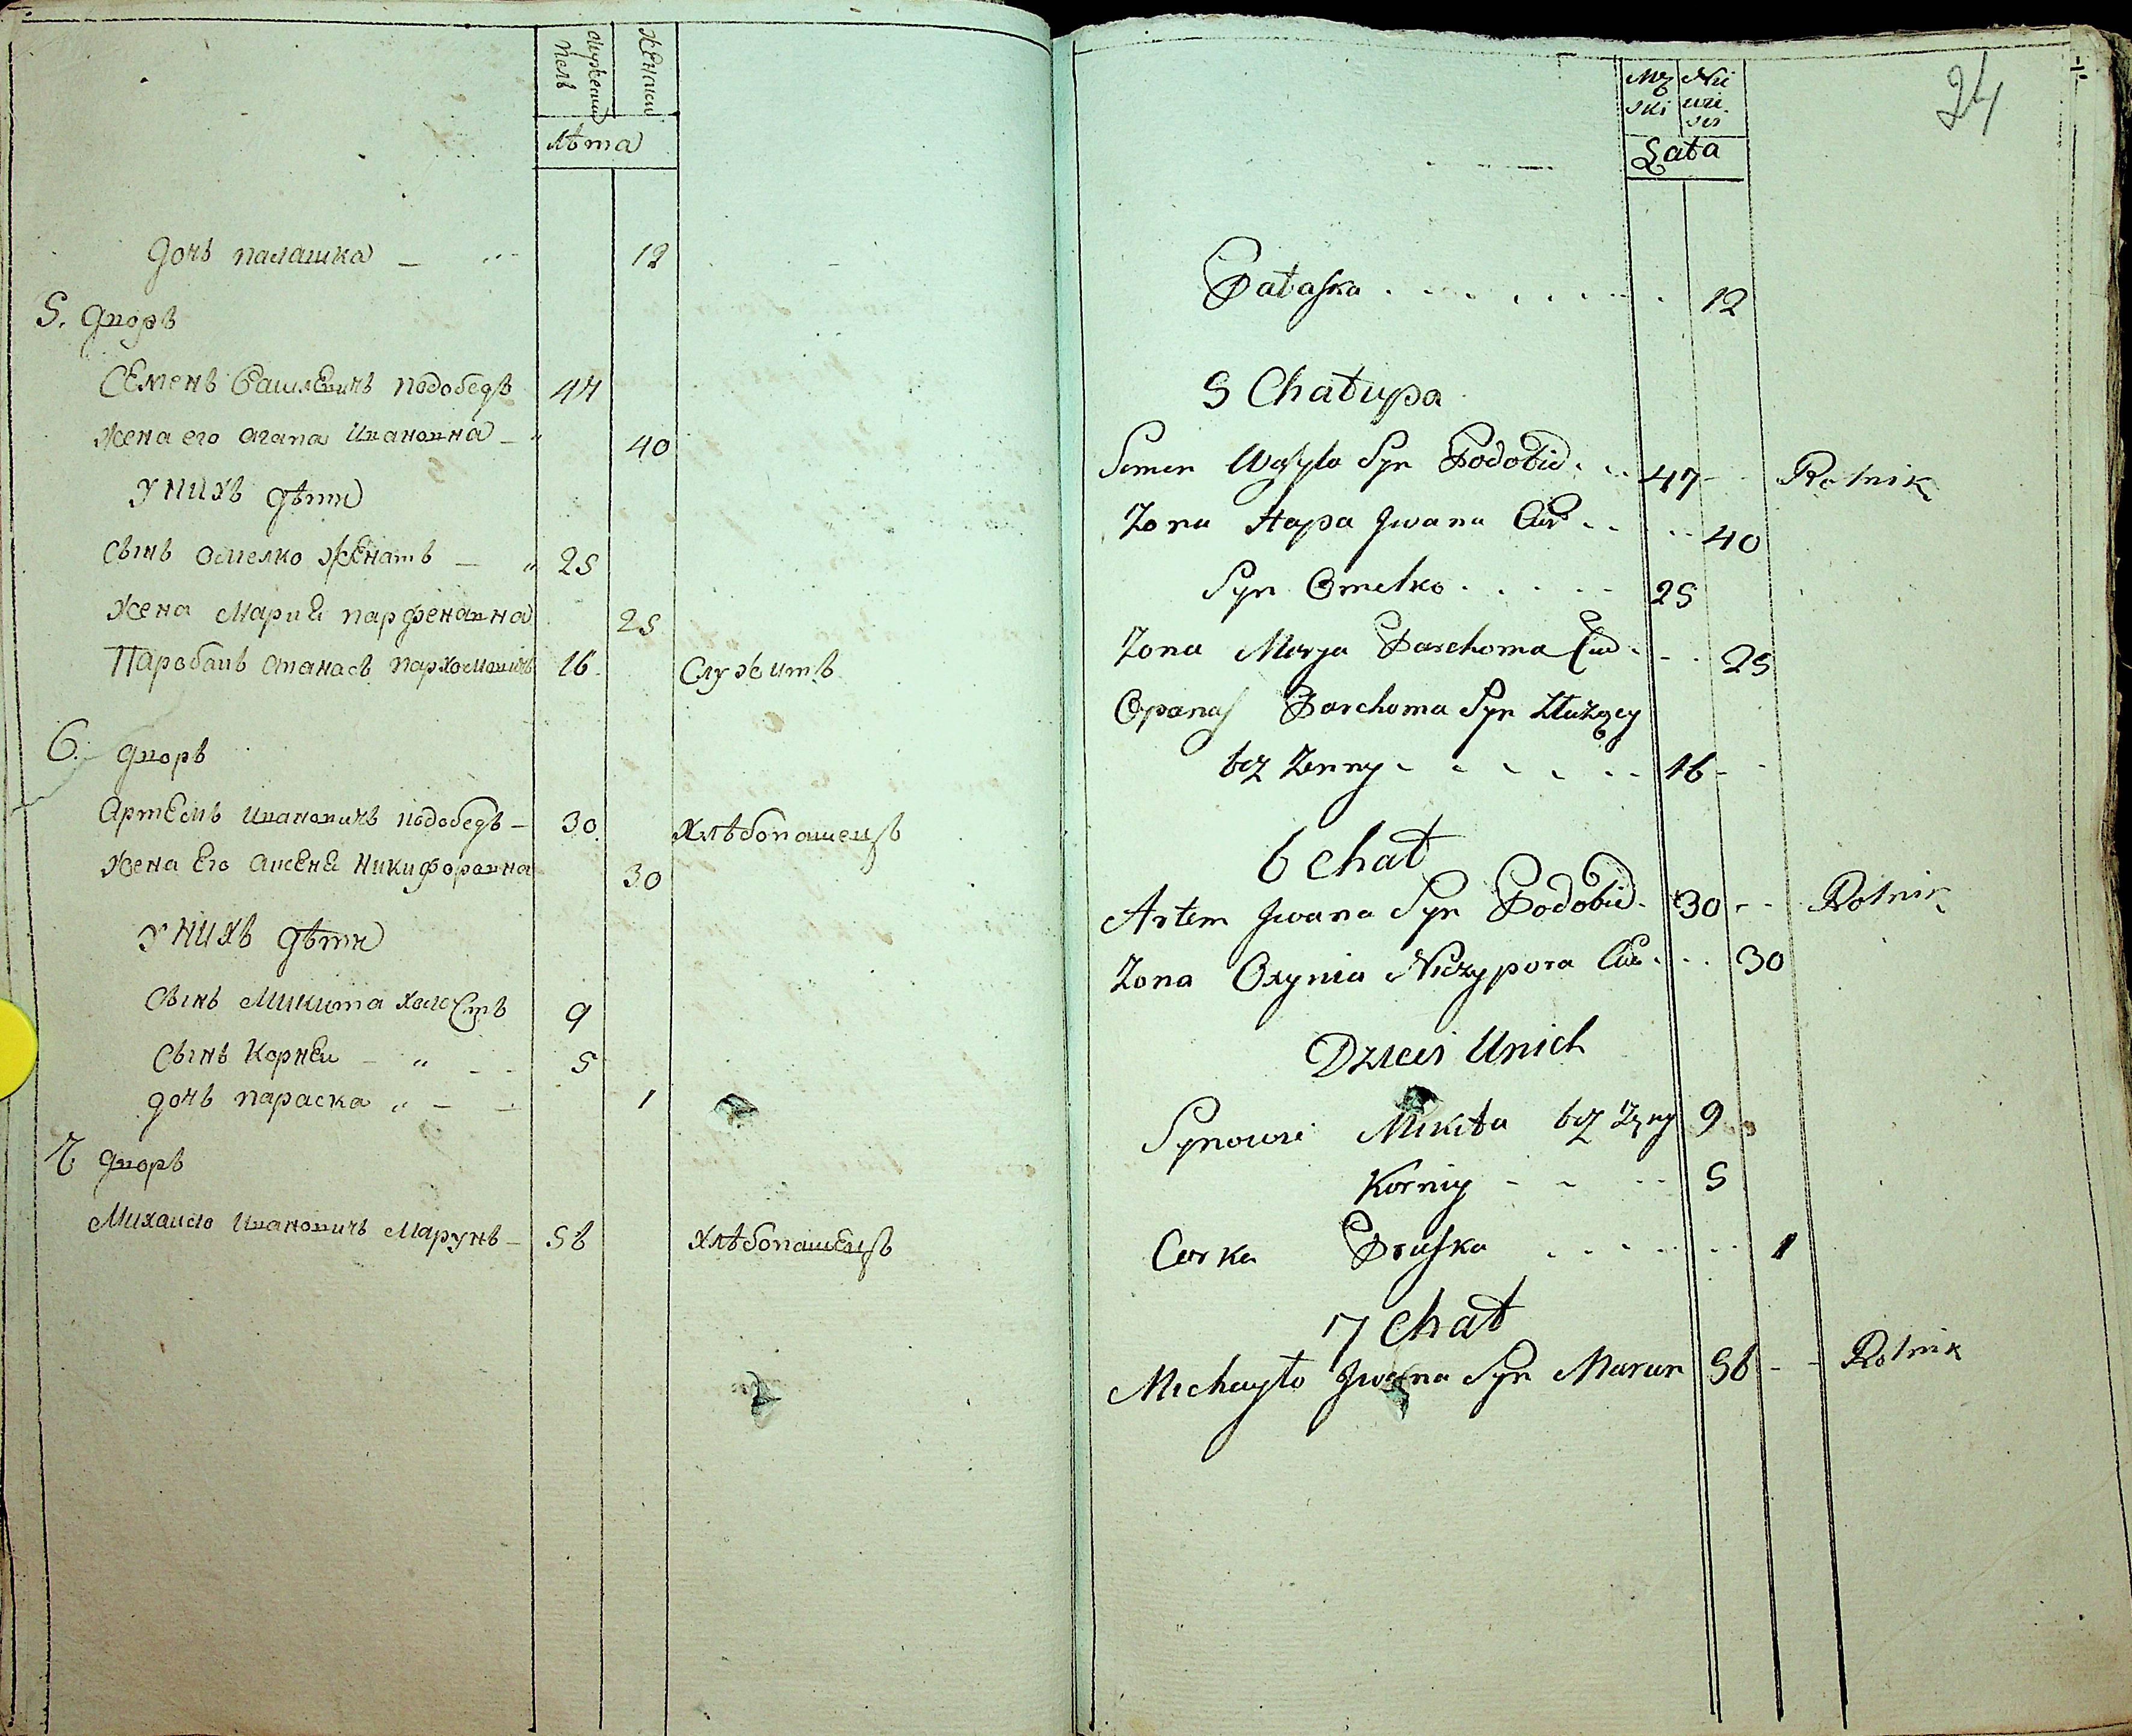 Мужескiй полъ
Женскiй
лѣта
дочь палашка 12
5. дворъ
Семенъ Василевичъ подобедъ 44
жена его агапа Ивановна 40
У нихъ дѣти
Сынъ омелко женатъ 25
жена Мария парфеновна 25
Паробакъ апанасъ пархомовичъ 16 Служитъ
6. дворъ
Артемъ Ивановичъ подобедъ 30 Хлѣбопашецъ
жена Его аксеня никифоровна 30
У нихъ дѣти
Сынъ Микита холостъ 9
Сынъ Корней 5
дочь параска 1
7. дворъ
Михайло Ивановичъ Марунъ 56 Хлѣбопашецъ
24
Męski Niewieści
Lata
Pałaska 12
5 Chałupa
Semen Wasyla Syn Podobid 47 Rolnik
Zona Hapa Jwana Cur 40
Syn Omelko 25
Zona Marya Parchoma Cur 25
Opanas Parchoma Syn Służący
bez Zenny 16
6 Chał
Artem Jwana Syn Podobid 30 Rolnik
Zona Oxynia Niczypora Cur 30
Dzieci Unich
Synowie Mikita bez Zeny 9
Korniy 5
Corka Praska 1
7 Chał
Michayło Jwana Syn Marun 56 Rolnik